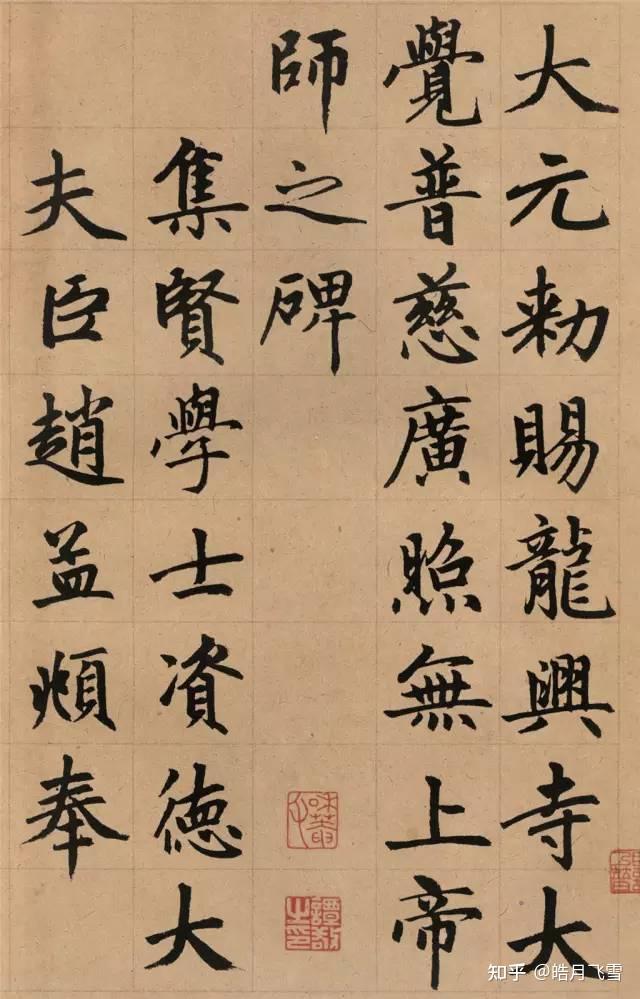 大元勅賜龍興寺大
覺普慈廣照無上帝
師之碑
集賢學士資德大
夫臣趙孟頫奉
知乎 @皓月飞雪